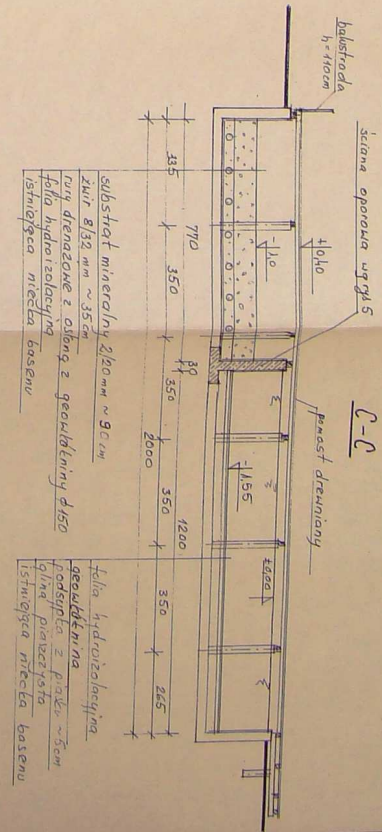 C-C
balustrada
h=110cm
ściana oporowa wg rys 5
pomost drewniany
+0,40
-1,10
-1,55
±0,00
135
350
350
350
350
265
770
30
1200
2000
substrat mineralny 2/20mm ~ 90cm
żwir 8/32 mm ~ 35cm
rury drenażowe z osłoną z geowłókniny d150
folia hydroizolacyjna
istniejąca niecka basenu
folia hydroizolacyjna
geowłóknina
podsypka z piasku ~5cm
glina piaszczysta
istniejąca niecka basenu